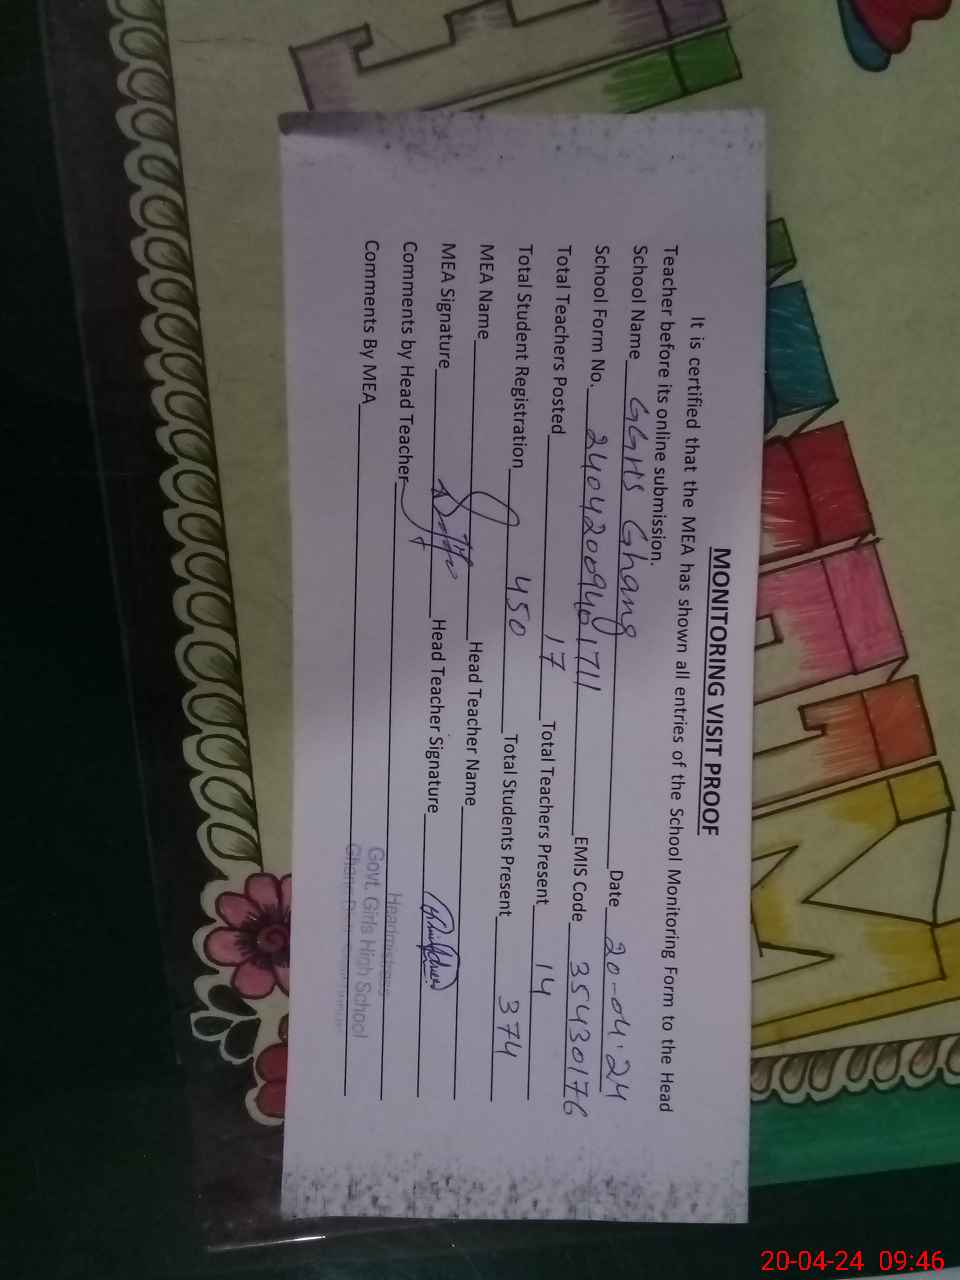 MONITORING VISIT PROOF
It is certified that the MEA has shown all entries of the School Monitoring Form to the Head
Teacher before its online submission.
School Name GGHS Ghang Date 20-04-24
School Form No. 24042009401711 EMIS Code 35430176
Total Teachers Posted 17 Total Teachers Present 14
Total Student Registration 450 Total Students Present 374
MEA Name Head Teacher Name
MEA Signature Head Teacher Signature
Comments by Head Teacher
Comments By MEA
Headmistress
Govt. Girls High School
Ghang
20-04-24 09:46